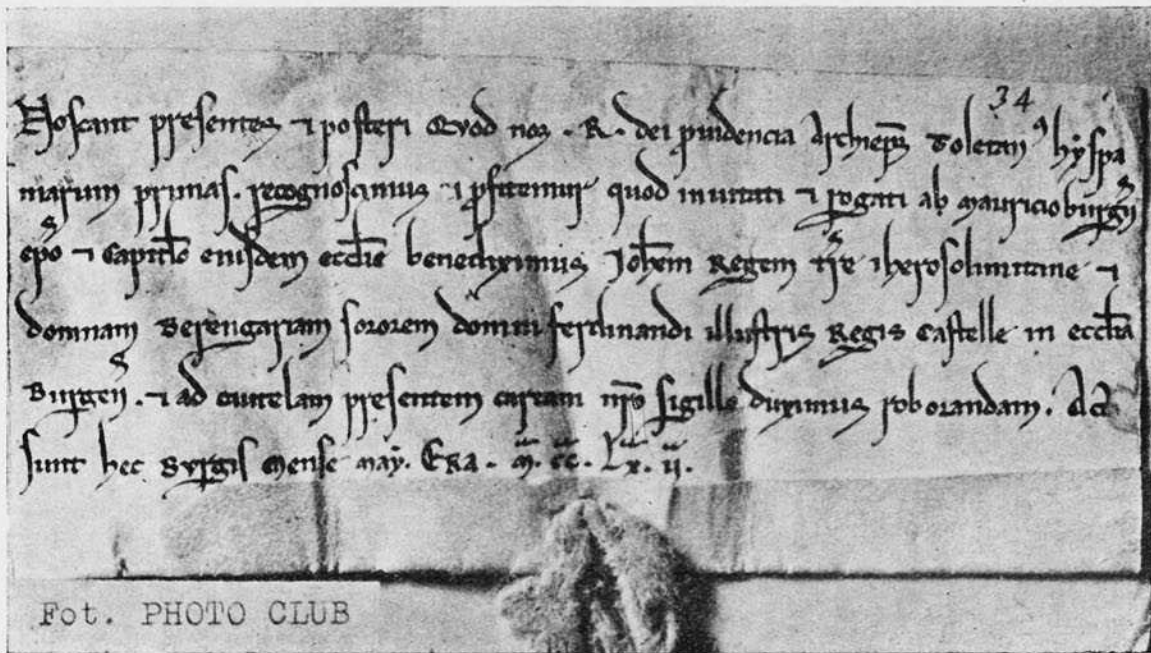 34
Noscant presentes ⁊ posteri Qvod nos . R . dei ꝓuidencia Archiep̃s Toletanꝰ hyspa
niarum primas . recognoscimus ⁊ ꝓfitemur quod inuitati ⁊ rogati ab mauricio burgẽñ
ep̃o ⁊ Capitl̃o eiusdem eccl̃ie benediximus Joh̃em Regem tr̃e iherosolimitane ⁊
domnam Berengariam sororem domini ferdinandi illustris Regis Castelle in eccl̃ia
Burgẽñ . ⁊ ad cautelam presentem cartam nr̃o sigillo duximus roborandam . Act̃
sunt hec Burgis Mense maÿ . ERA . m̃ . c̃c̃ . Lx̃ . ii .
Fot. PHOTO CLUB